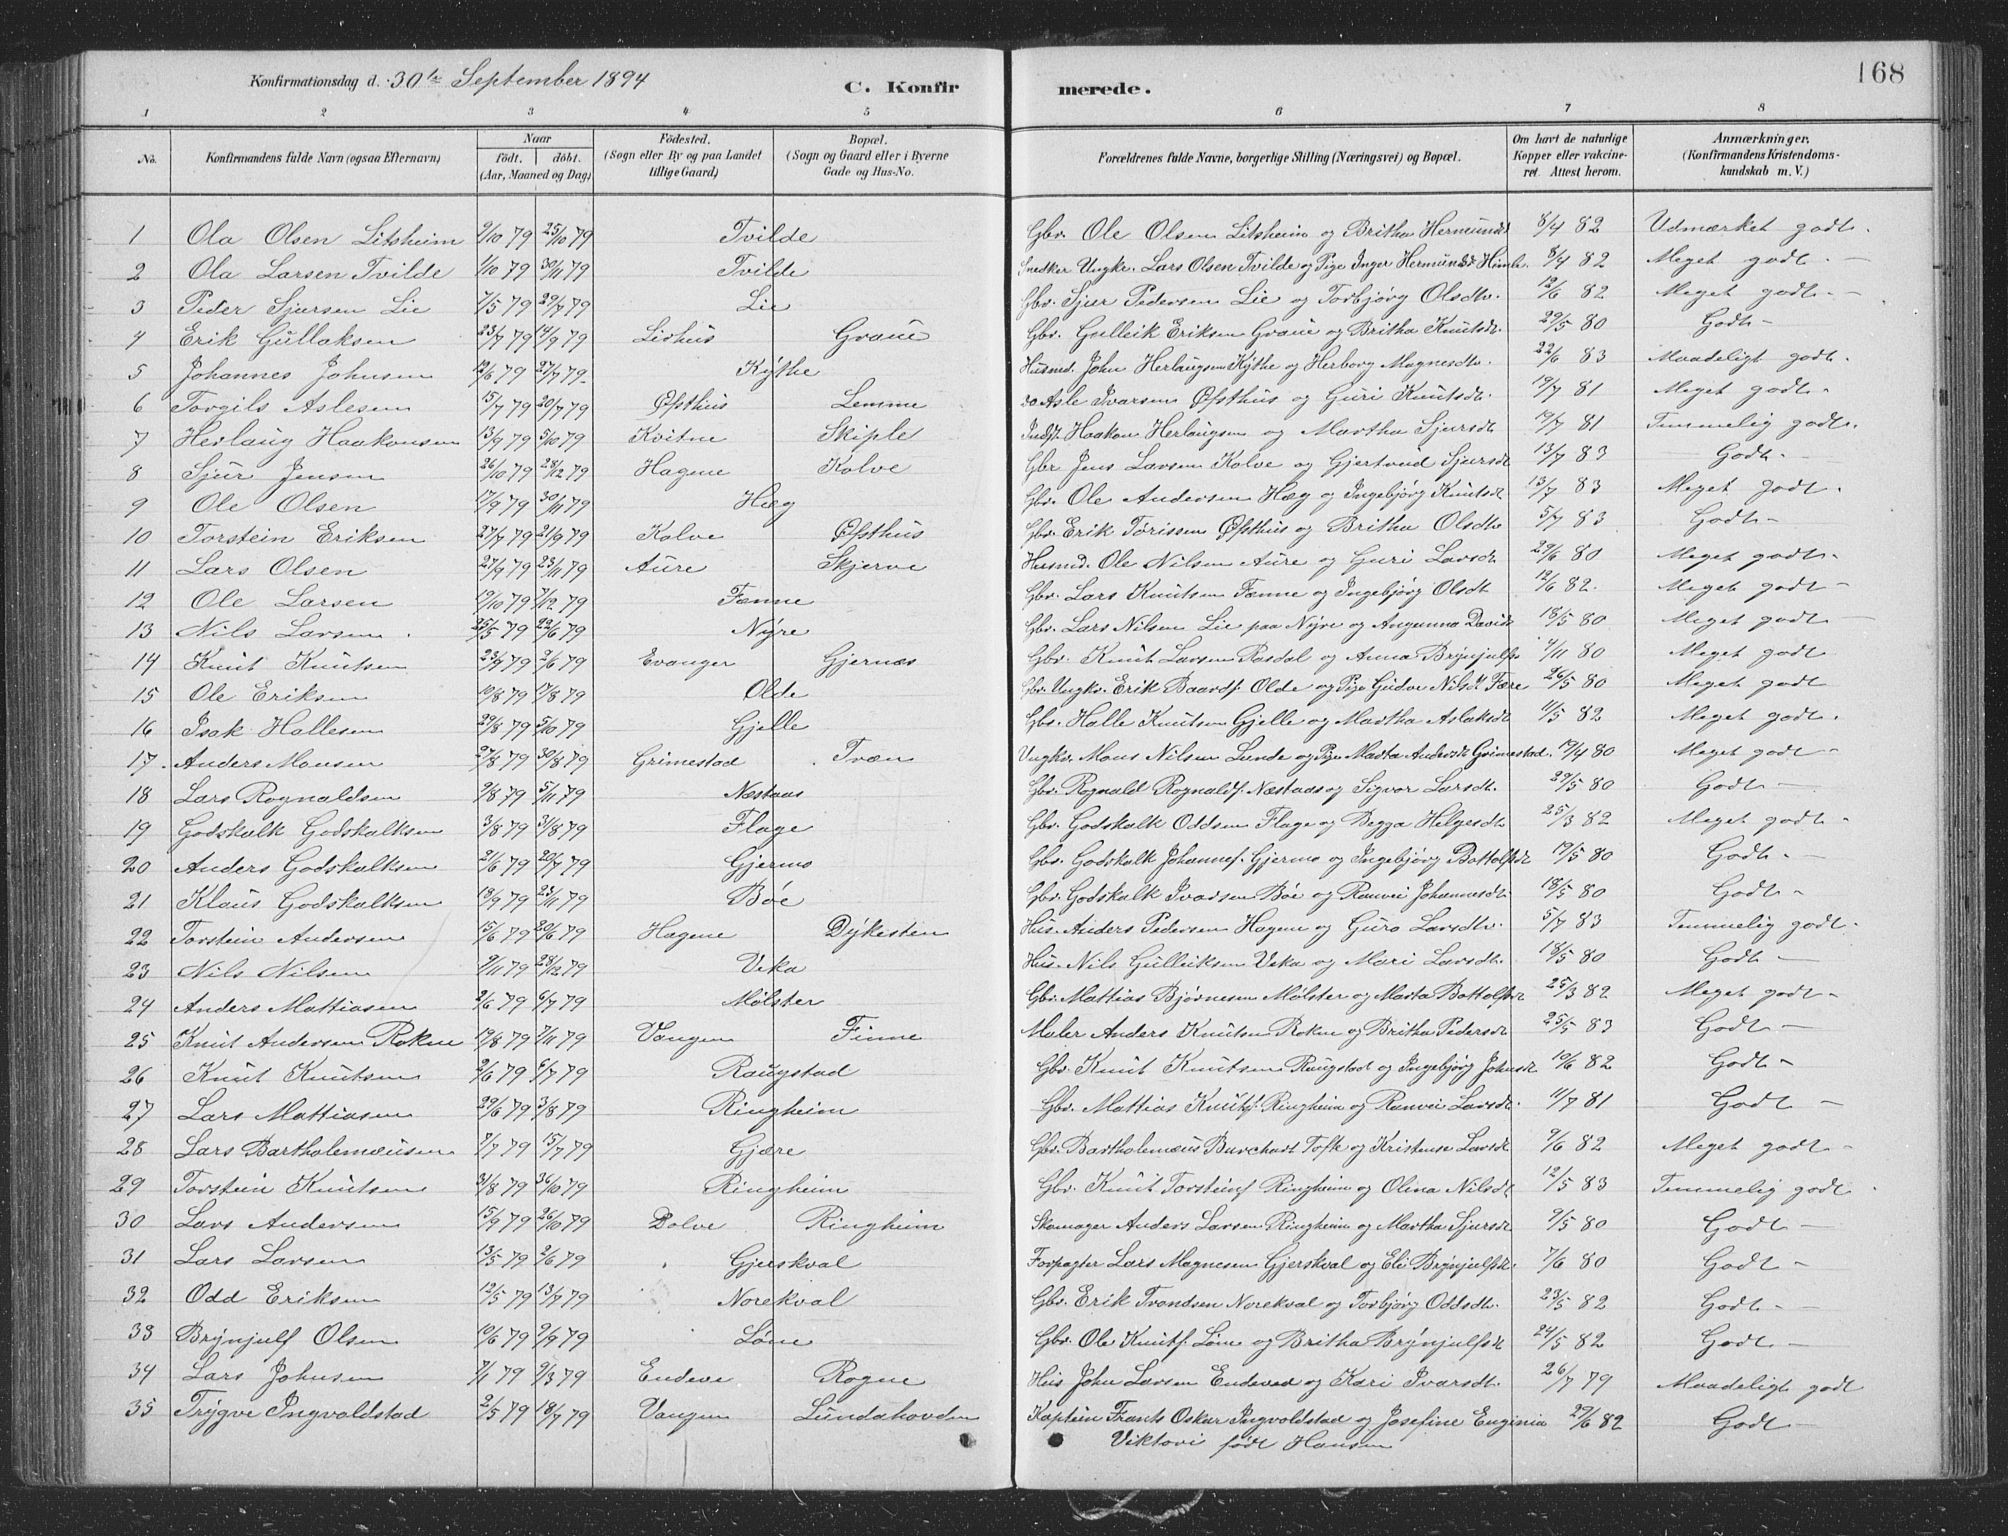 Konfirmationsdag d. 30te September 1894 C. Konfirmerede. 168
1 2 3 4 5 6 7 8
No. Konfirmandens fulde Navn (ogsaa Efternavn) Naar födt. döbt. (Aar, Maaned og Dag) Födested. (Sogn eller By og paa Landet tillige Gaard) Bopæl. (Sogn og Gaard eller i Byerne Gade og Hus-No. Forældrenes fulde Navne, borgerlige Stilling (Næringsvei) og Bopæl. Om havt de naturlige Kopper eller vakcineret. Attest herom. Anmærkninger. (Konfirmandens Kristendomskundskab m. V.)
1 Ola Olsen Litsheim 9/10 79 25/10 79 Tvilde Gbr. Ole Olsen Litsheim og Britha Hermundsd 8/4 82 Udmærket godt.
2 Ola Larsen Tvilde 1/10 79 30/11 79 Tvilde Snedker Ungkr. Lars Olsen Tvilde og Pige Inger Hermundsd Himle. 8/4 82 Meget godt. -
3 Peder Sjursen Lie 7/5 79 29/7 79 Lie Gbr. Sjur Pedersen Lie og Torbjørg Olsdtr. 12/6 82 Meget godt. -
4 Erik Gullaksen 23/7 79 14/9 79 Livhus Graue Gbr. Gulleik Eriksen Graue og Britha Knutsdt. 29/5 80 Godt -
5 Johannes Johnsen 12/6 79 27/7 79. Kÿthe Husmd. John Herlaugsen Kÿthe og Herborg Magnesdtr. 22/6 83 Maadeligt godt.
6 Torgils Aslesen 15/7 79 20/7 79 Øfsthus Lemme do Asle Ivarsen Øfsthus og Guri Knutsdt. 19/7 81 Meget godt -
7 Herlaug Haakonsen 13/9 79 5/10 79 Kvitne Skiple Indst. Haakon Herlaugsen og Martha Sjursdt 19/7 81 Temmelig godt.
8 Sjur Jensen 26/10 79 28/12 79 Hagene Kolve Gbr Jens Larsen Kolve og Gjertrud Sjursdt 13/7 83 Godt. -
9 Ole Olsen 17/9 79 30/11 79 Hæg Gbr. Ole Andersen Hæg og Ingebjörg Knutsdt 13/7 83 Meget godt.
10 Torstein Eriksen 27/7 79 21/9 79 Kolve Øfsthus Gbr. Erik Torissen Øfsthus og Britha Olsdtr 5/7 83 Godt -
11 Lars Olsen 27/9 79 23/11 79 Aure Skjerve Husmd. Ole Nilsen Aure og Guri Larsdt 29/6 80 Meget godt -
12 Ole Larsen 19/10 79 7/12 79 Fenne Gbr. Lars Knutsen Fenne og Ingebjörg Olsdt 12/6 82. Meget godt -
13 Nils Larsen. 25/5 79 22/6 79 Nÿre Gbr. Lars Nilsen Lie paa Nÿre og Angunna Davidt 18/5 80 Meget godt -
14 Knut Knutsen 23/4 79 2/6 79 Evanger Gjernæs Gbr. Knut Larsen Rasdal og Anna Brÿnjulfs 4/11 80 Meget godt
15 Ole Eriksen 10/8 79 17/8 79 Olde Gbr. Ungkr. Erik Baardf. Olde og Pige Gudve Nilsdt Fære 26/5 80 Meget godt
16 Isak Hallesen 29/8 79 5/10 79 Gjelle Gbr. Halle Knutsen Gjelle og Martha Aslaksdt 11/5 82 Meget godt.
17. Anders Monsen 27/8 79 30/8 79 Grimestad Tvæn Ungkr. Mons Nilsen Lunde og Pige Marta Andersdt Grimestad. 19/4 80 Meget godt -
18 Lars Rognaldsen 9/8 79 5/11 79 Næstaas Gbr. Rognald Rognaldf. Næstaas og Sigvor Larsdt. 29/5 80 Godt -
19 Godskalk Godskalksen 3/8 79 31/8 79 Flage Gbr. Godskalk Oddsen Flage og Begga Helgesdt 25/3 82 Meget godt -
20 Anders Godskalksen 21/6 79 20/7 79 Gjermo Gbr. Godskalk Johannef. Gjermo og Ingebjörg Bottolfsdt 19/5 80 Godt -
21 Klaus Godskalksen 18/9 79 23/11 79 Bøe Gbr. Godskalk Ivarsen Bøe og Ranvei Johannesdt. 18/5 80 Godt -
22 Torstein Andersen 15/6 79 20/6 79 Hagene Dÿkesten Hus. Anders Pedersen Hagene og Guro Larsdtr. 5/7 83 Temmelig godt.
23 Nils Nilsen 9/11 79 28/12 79 Veka Hus. Nils Gulleiksen Veka og Mari Larsdt. 18/5 80 Godt -
24 Anders Mattiasen 2/6 79 6/7 79 Mølster Gbr. Mattias Bjørnesen Mølster og Marta Bottolfsdt 25/3 82 Meget godt -
25 Knut Andersen Rokne 19/8 79 7/11 79 Vangen Finne Maler Anders Knutsen Rokne og Britha Pedersdt 25/5 83 Godt -
26 Knut Knutsen 2/6 79 6/7 79 Raugstad Gbr. Knut Knutsen Raugstad og Ingebjörg Johnsdt 10/6 82 Godt -
27 Lars Mattiasen 29/6 79 3/8 79 Ringheim Gbr. Mattias Knutf. Ringheim og Ranvei Larsdt. 11/7 81 Godt -
28 Lars Bartholemæusen 7/7 79 15/7 79 Gjære Gbr. Bartholemæus Burchart Tofte og Kristense Larsdt 9/6 82 Meget godt -
29 Torstein Knutsen 31/8 79 26/10 79 Ringheim Gbr. Knut Torsteinf Ringheim og Olina Nilsdt 12/5 83 Temmelig godt.
30 Lars Andersen 15/9 79 26/10 79 Dolve Ringheim Skomager Anders Larsen Ringheim og Martha Sjursdt 9/5 80 Godt -
31 Lars Larsen 13/5 79 2/6 79 Gjerskval Forpagter Lars Magnesen Gjerskval og Eli Brÿnjulfsdt. 7/6 80 Godt -
32 Odd Eriksen 12/5 79 13/7 79 Norekval Gbr. Erik Trondsen Norekval og Torbjörg Oddsdtr. 23/5 82 Godt -
33 Brÿnjulf Olsen 10/6 79 9/9 79 Løne Gbr. Ole Knutf. Løne og Britha Brÿnjulfsdt 24/5 82 Godt -
34 Lars Johnsen 7/1 79 9/3 79 Endeve Rogne Hus John Larsen Endeved og Kari Ivarsdt. 26/7 79 Maadeligt godt
35 Trÿgve Ingvoldstad 2/5 79 18/7 79 Vangen Lundahovden Kaptein Frants Oskar Ingvoldstad og Josefine Euginia 29/6 82 Godt -
Viktori født Hansen